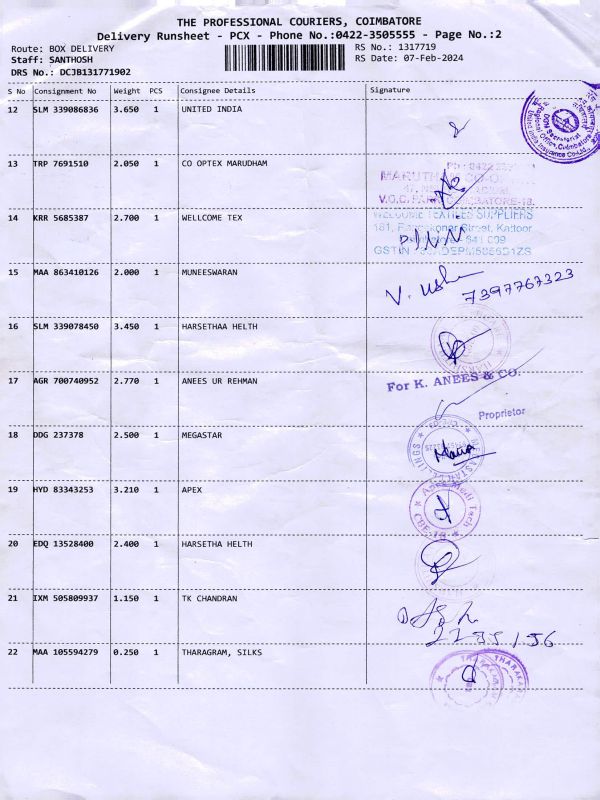 THE PROFESSIONAL COURIERS, COIMBATORE
Delivery Runsheet - PCX - Phone No.:0422-3505555 - Page No.:2
Route: BOX DELIVERY
RS No.: 1317719
Staff: SANTHOSH
RS Date: 07-Feb-2024
DRS No.: DCJB131771902
S No Consignment No Weight PCS Consignee Details Signature
12 SLM 339086836 3.650 1 UNITED INDIA
13 TRP 7691510 2.050 1 CO OPTEX MARUDHAM
14 KRR 5685387 2.700 1 WELLCOME TEX
WELCOME TEXTILES SUPPLIERS
Street, Kattoor
GSTIN
15 MAA 863410126 2.000 1 MUNEESWARAN
V. Usha 7397767323
16 SLM 339078450 3.450 1 HARSETHAA HELTH
17 AGR 700740952 2.770 1 ANEES UR REHMAN
For K. ANEES & CO.
Proprietor
18 DDG 237378 2.500 1 MEGASTAR
19 HYD 83343253 3.210 1 APEX
20 EDQ 13528400 2.400 1 HARSETHA HELTH
21 IXM 505809937 1.150 1 TK CHANDRAN
22 MAA 105594279 0.250 1 THARAGRAM, SILKS